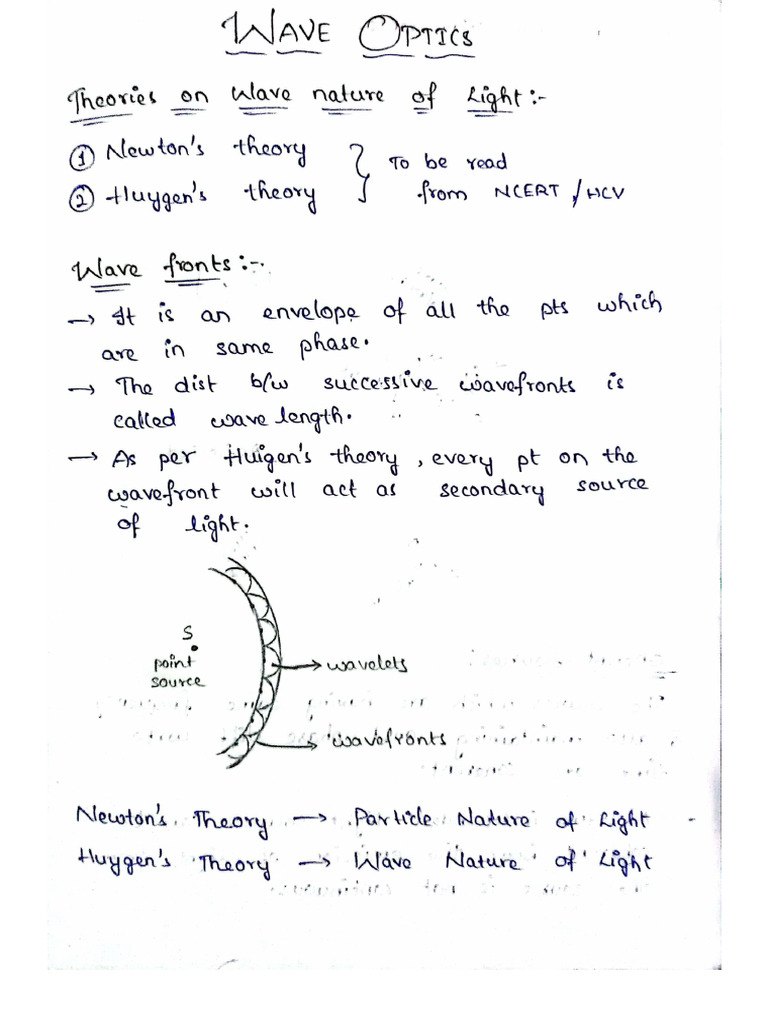 WAVE OPTICS
Theories on Wave nature of Light:-
① Newton's theory } To be read
② Huygen's theory } from NCERT / HCV
Wave fronts:-
→ It is an envelope of all the pts which
are in same phase.
→ The dist b/w successive wavefronts is
called wave length.
→ As per Huigen's theory, every pt on the
wavefront will act as secondary source
of light.
S
point
source
→ wavelets
→ wavefronts
Newton's Theory → Particle Nature of Light
Huygen's Theory → Wave Nature of Light